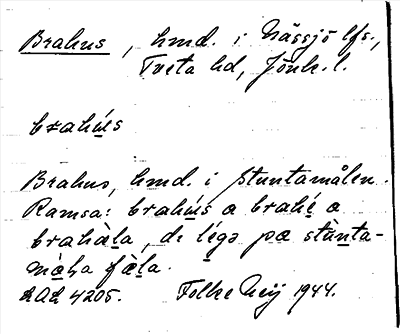 Brahus, hmd. i Nässjö lfs.,
Tveta hd, Jönk. l.
brahús
Brahus, hmd. i Stuntamålen.
Ramsa: brahús a brahé a
brahàla, dı légə pa stùnta-
màḷa fàla.
ULA 4205. Folke Heij 1944.